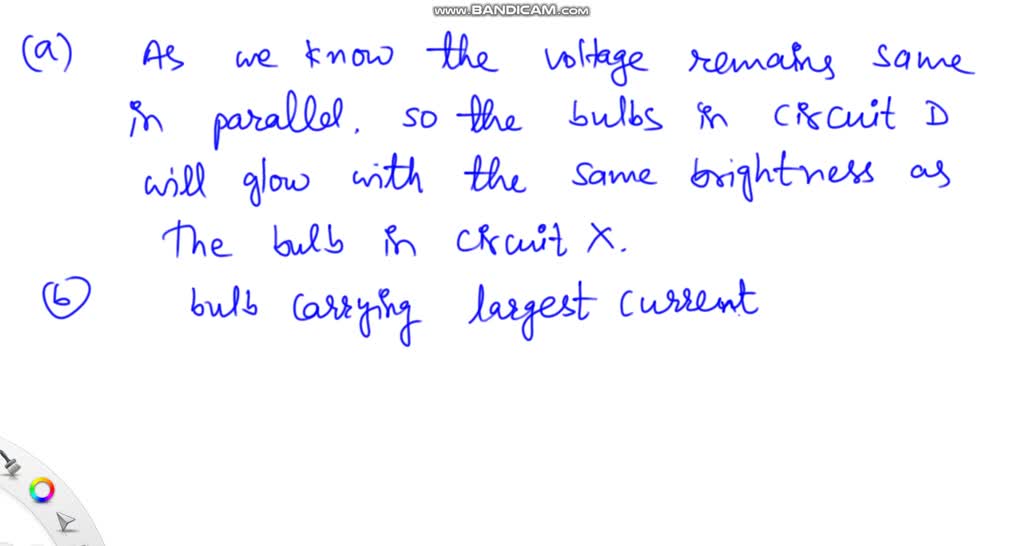 www.BANDICAM.com
(a) As we know the voltage remains same
in parallel, so the bulbs in circuit D
will glow with the same brightness as
The bulb in circuit X.
(b) bulb carrying largest current